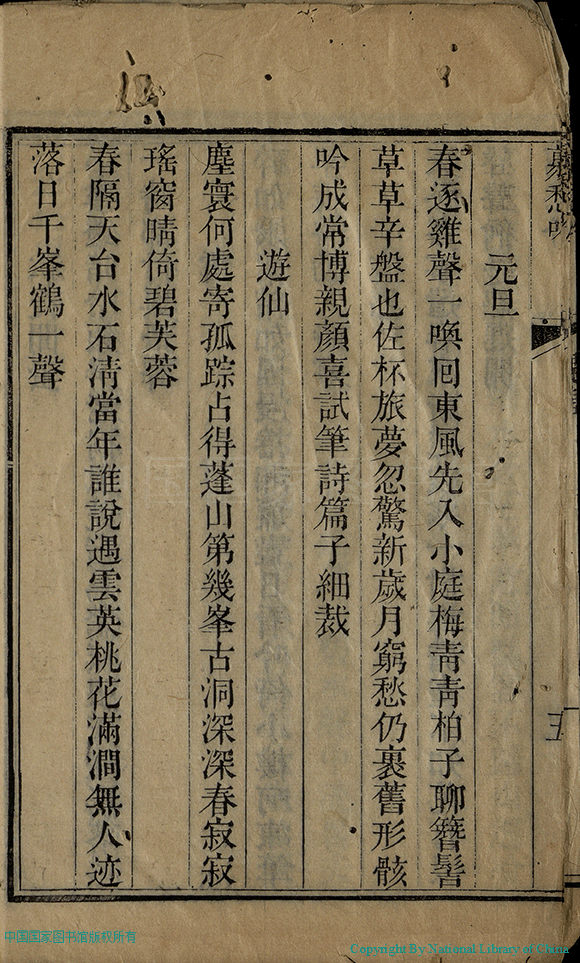 裹愁吟
元旦
春逐雞聲一喚回東風先入小庭梅靑靑柏子聊簪髻
草草辛盤也佐杯旅夢忽驚新歲月窮愁仍裹舊形骸
吟成常博親顏喜試筆詩篇子細裁
遊仙
塵寰何處寄孤踪占得蓬山第幾峯古洞深深春寂寂
瑤窗晴倚碧芙蓉
春隔天台水石淸當年誰說遇雲英桃花滿澗無人迹
落日千峯鶴一聲
五
中国国家图书馆版权所有
Copyright By National Library of China